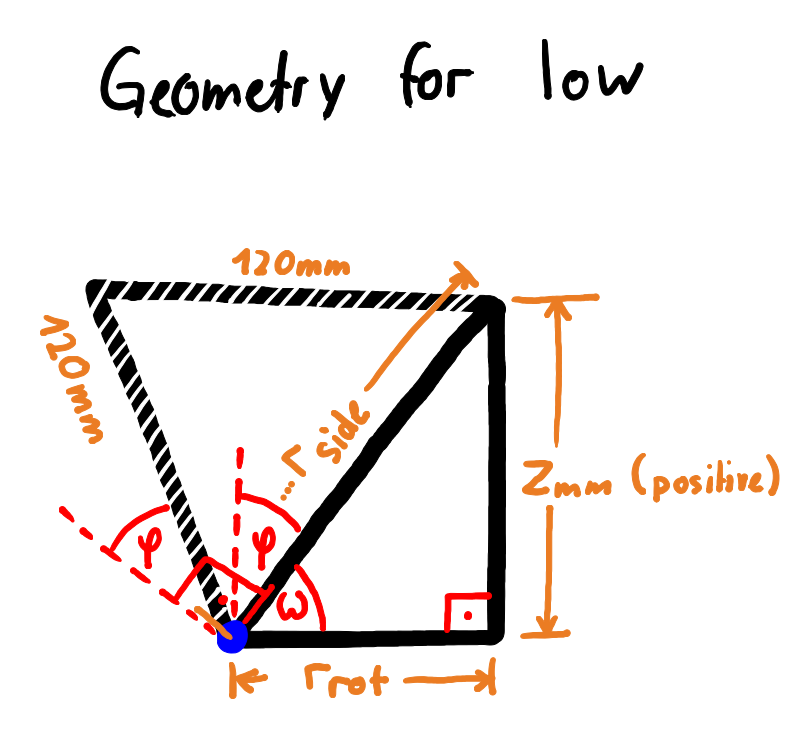 Geometry for low
120mm
120mm
...r side
Zmm (positive)
φ
φ
ω
rrot